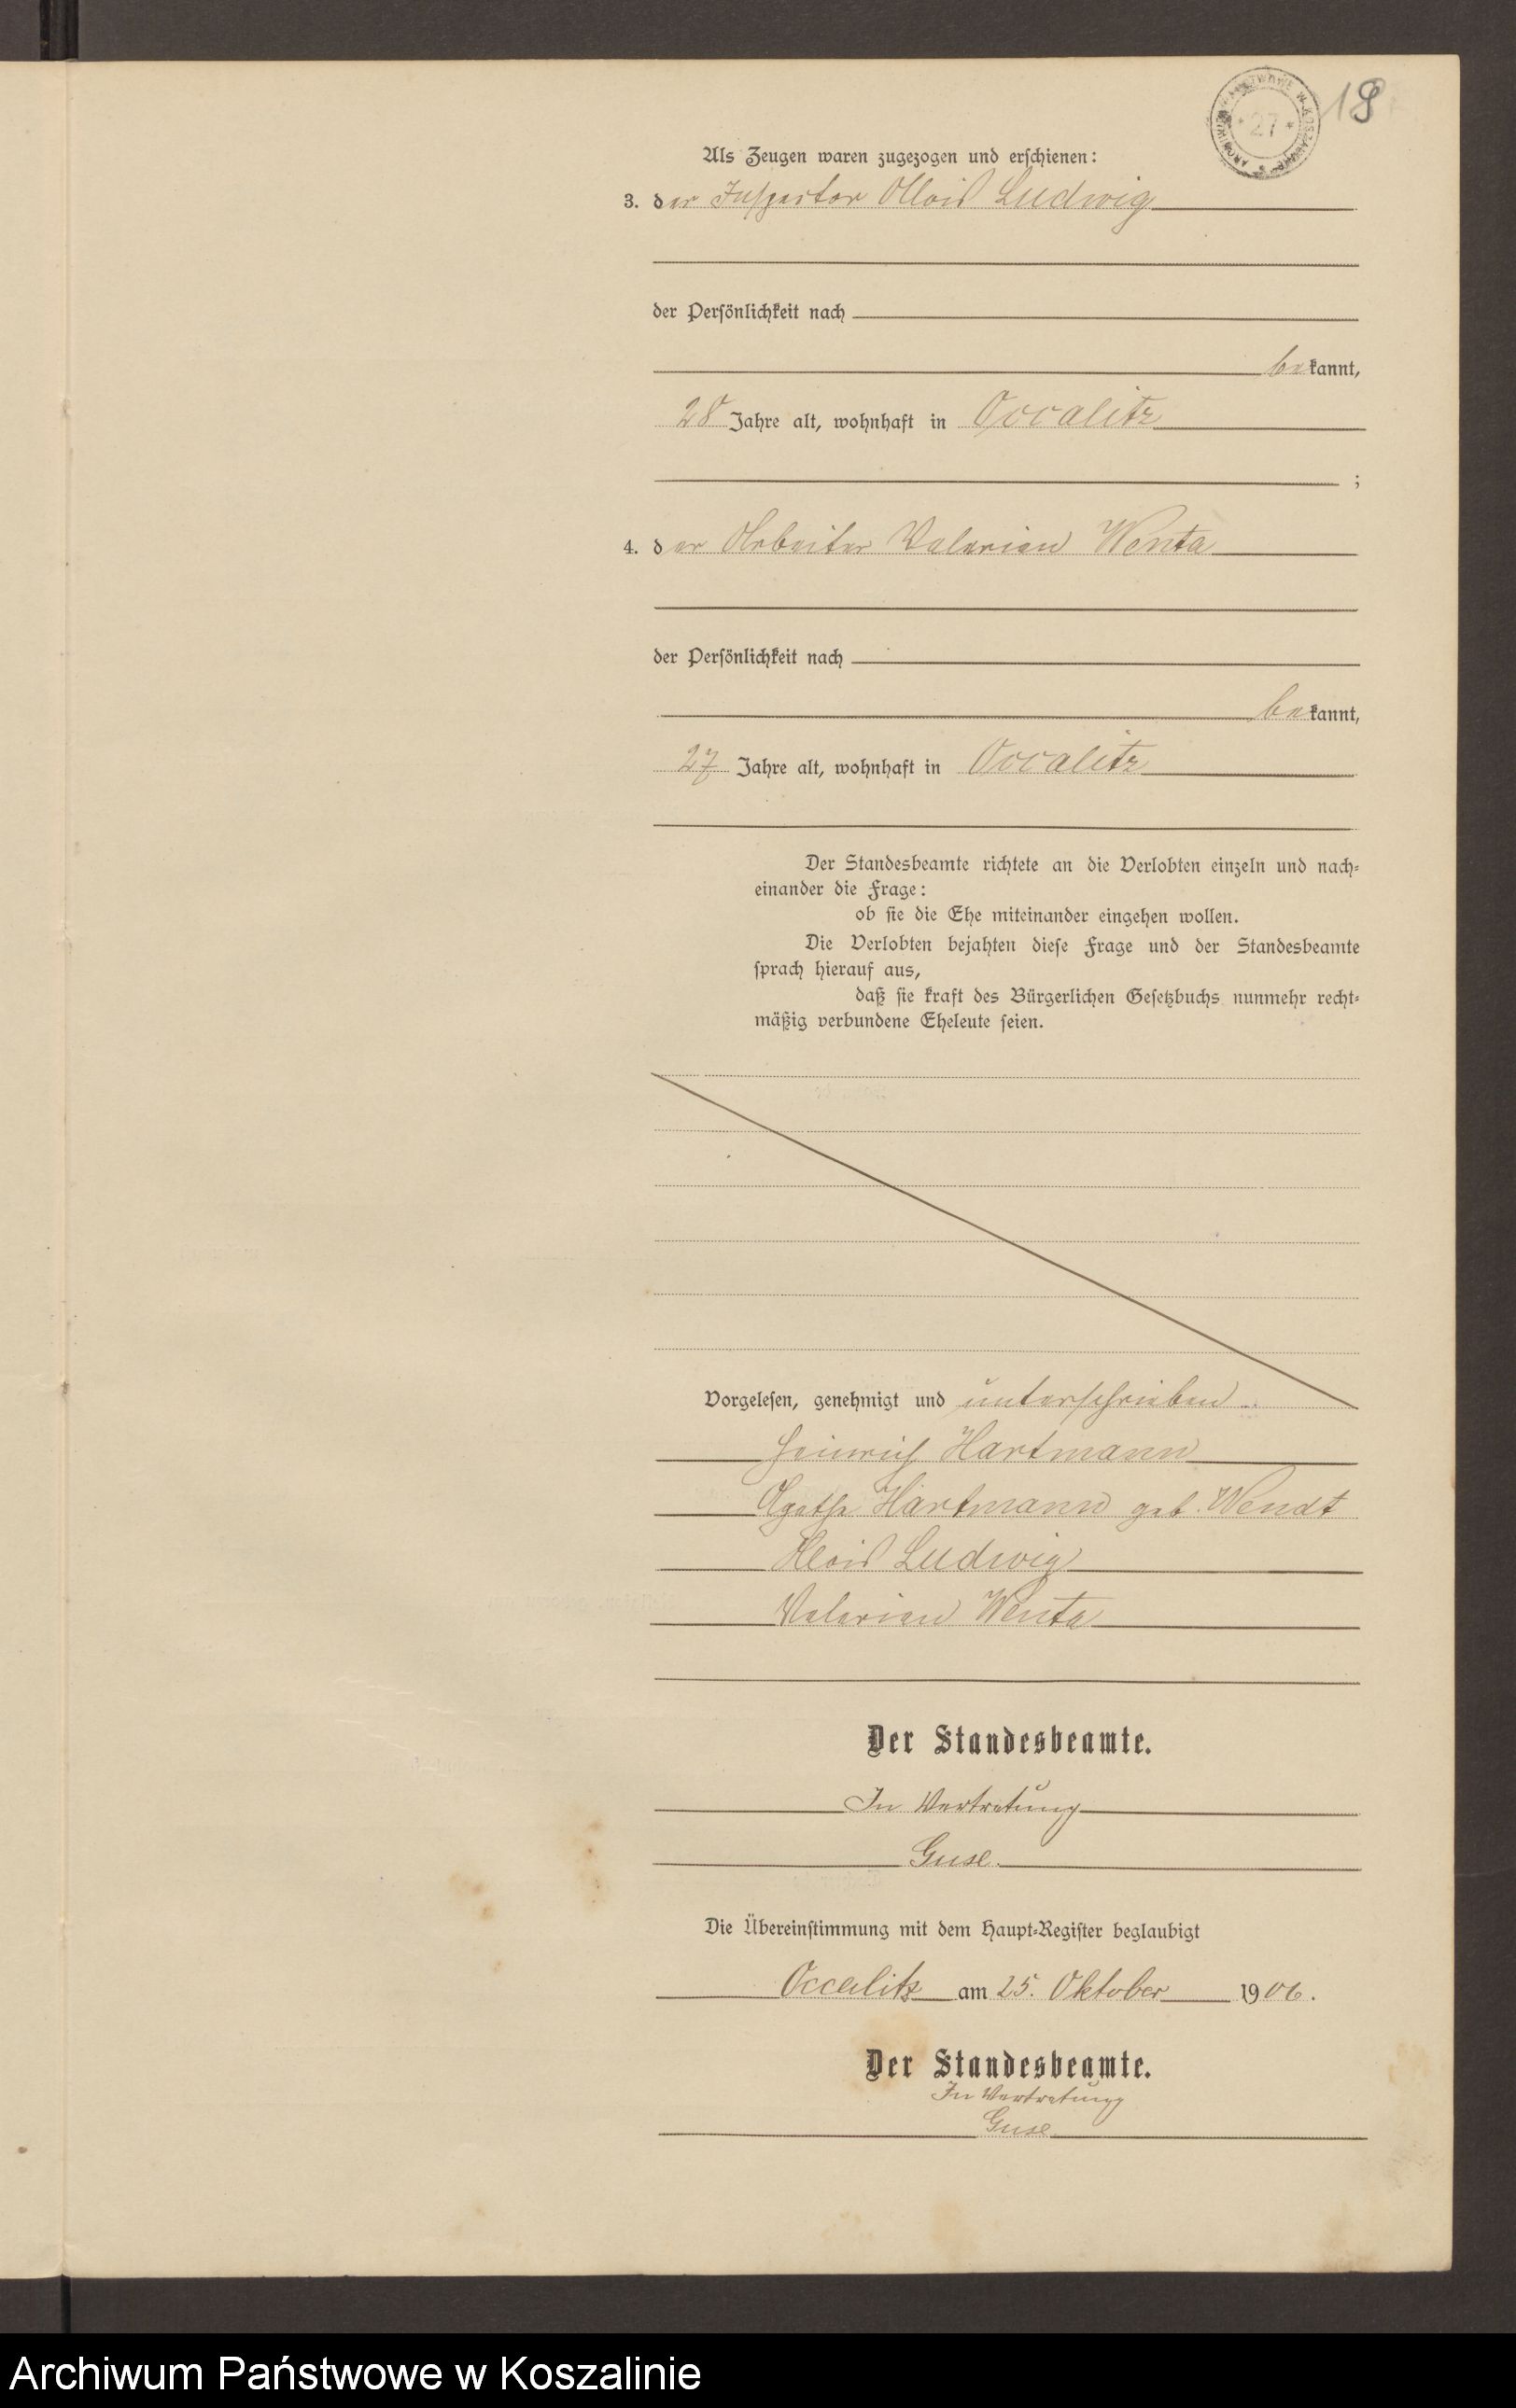 18
ARCHIWUM PAŃSTWOWE W KOSZALINIE
* 27 *
Als Zeugen waren zugezogen und erschienen:
3. der Inspector Alois Ludwig
der Persönlichkeit nach
bekannt,
28 Jahre alt, wohnhaft in Occalitz
;
4. der Arbeiter Valerian Wenta
der Persönlichkeit nach
bekannt,
27 Jahre alt, wohnhaft in Occalitz
Der Standesbeamte richtete an die Verlobten einzeln und nach-
einander die Frage:
ob sie die Ehe miteinander eingehen wollen.
Die Verlobten bejahten diese Frage und der Standesbeamte
sprach hierauf aus,
daß sie kraft des Bürgerlichen Gesetzbuchs nunmehr recht-
mäßig verbundene Eheleute seien.
Vorgelesen, genehmigt und unterschrieben
Heinrich Hartmann
Agathe Hartmann geb. Wendt
Alois Ludwig
Valerian Wenta
Der Standesbeamte.
In Vertretung
Guse.
Die Übereinstimmung mit dem Haupt-Register beglaubigt
Occalitz am 25. Oktober 1906.
Der Standesbeamte.
In Vertretung
Guse
Archiwum Państwowe w Koszalinie